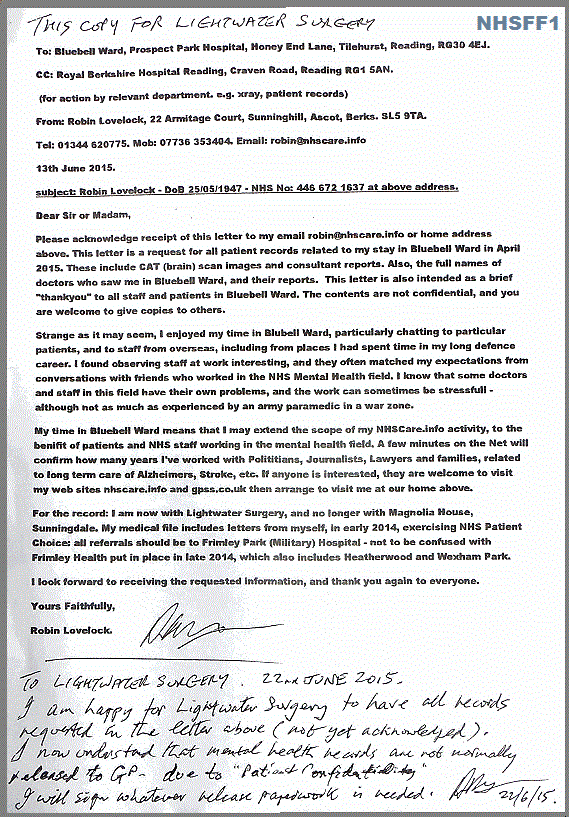 THIS COPY FOR LIGHTWATER SURGERY
NHSFF1
To: Bluebell Ward, Prospect Park Hospital, Honey End Lane, Tilehurst, Reading, RG30 4EJ.
CC: Royal Berkshire Hospital Reading, Craven Road, Reading RG1 5AN.
(for action by relevant department. e.g. xray, patient records)
From: Robin Lovelock, 22 Armitage Court, Sunninghill, Ascot, Berks. SL5 9TA.
Tel: 01344 620775. Mob: 07736 353404. Email: robin@nhscare.info
13th June 2015.
subject: Robin Lovelock - DoB 25/05/1947 - NHS No: 446 672 1637 at above address.
Dear Sir or Madam,
Please acknowledge receipt of this letter to my email robin@nhscare.info or home address
above. This letter is a request for all patient records related to my stay in Bluebell Ward in April
2015. These include CAT (brain) scan images and consultant reports. Also, the full names of
doctors who saw me in Bluebell Ward, and their reports. This letter is also intended as a brief
"thankyou" to all staff and patients in Bluebell Ward. The contents are not confidential, and you
are welcome to give copies to others.
Strange as it may seem, I enjoyed my time in Blubell Ward, particularly chatting to particular
patients, and to staff from overseas, including from places I had spent time in my long defence
career. I found observing staff at work interesting, and they often matched my expectations from
conversations with friends who worked in the NHS Mental Health field. I know that some doctors
and staff in this field have their own problems, and the work can sometimes be stressfull -
although not as much as experienced by an army paramedic in a war zone.
My time in Bluebell Ward means that I may extend the scope of my NHSCare.info activity, to the
benifit of patients and NHS staff working in the mental health field. A few minutes on the Net will
confirm how many years I've worked with Polititians, Journalists, Lawyers and families, related
to long term care of Alzheimers, Stroke, etc. If anyone is interested, they are welcome to visit
my web sites nhscare.info and gpss.co.uk then arrange to visit me at our home above.
For the record: I am now with Lightwater Surgery, and no longer with Magnolia House,
Sunningdale. My medical file includes letters from myself, in early 2014, exercising NHS Patient
Choice: all referrals should be to Frimley Park (Military) Hospital - not to be confused with
Frimley Health put in place in late 2014, which also includes Heatherwood and Wexham Park.
I look forward to receiving the requested information, and thank you again to everyone.
Yours Faithfully,
Robin Lovelock.
TO LIGHTWATER SURGERY. 22nd JUNE 2015.
I am happy for Lightwater Surgery to have all records
requested in the letter above (not yet acknowledged).
I now understand that mental health records are not normally
released to GP - due to "Patient Confidentiality"
I will sign whatever release paperwork is needed. 22/6/15.